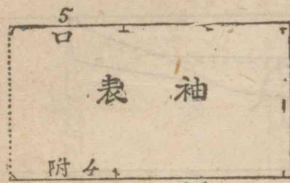 5
口
袖表
附 4